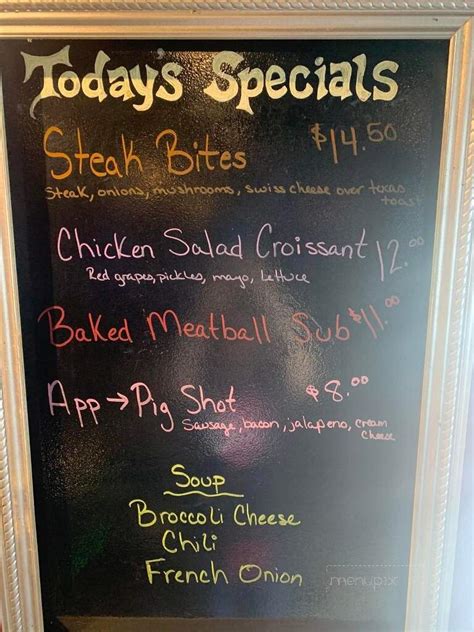 Today's Specials
Steak Bites $14.50
Steak, onions, mushrooms, swiss cheese over texas
toast
Chicken Salad Croissant 12.00
Red grapes, pickles, mayo, lettuce
Baked Meatball Sub $11.00
App → Pig Shot $8.00
Sausage, bacon, jalapeno, cream
cheese
Soup
Broccoli Cheese
Chili
French Onion
menupix